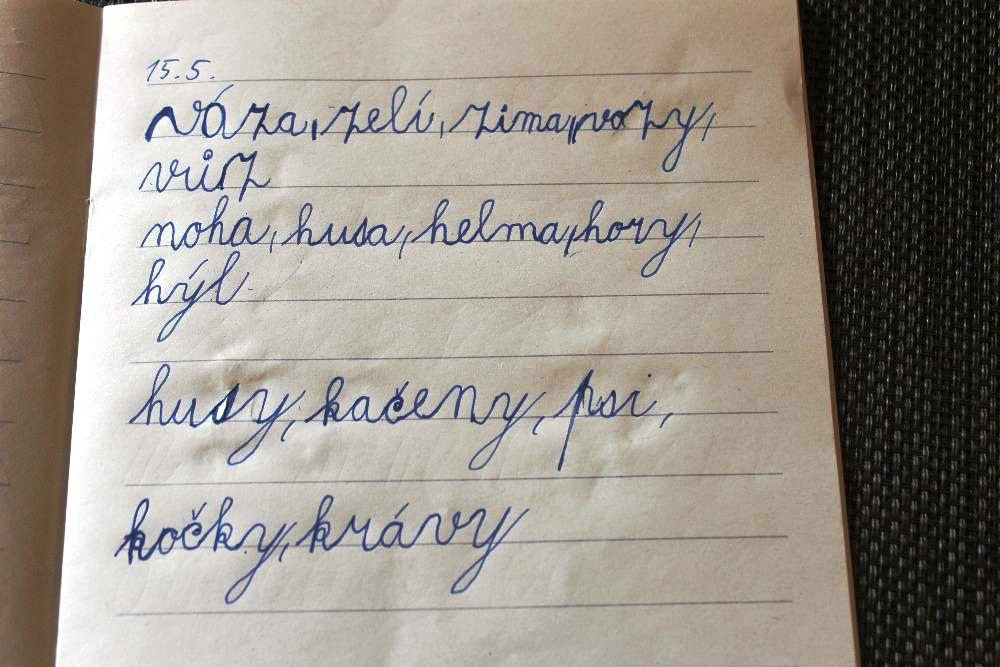 15.5.
váza, zelí, zima, vozy,
vůz
noha, husa, helma, hory,
hýl
husy, kačeny, psi,
kočky, krávy